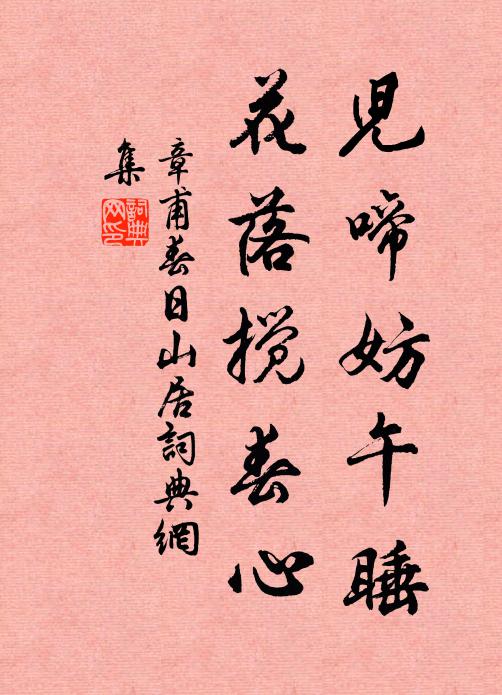 兒啼妨午睡
花落攪春心
章甫春日山居詞典網
集
詞典
网印